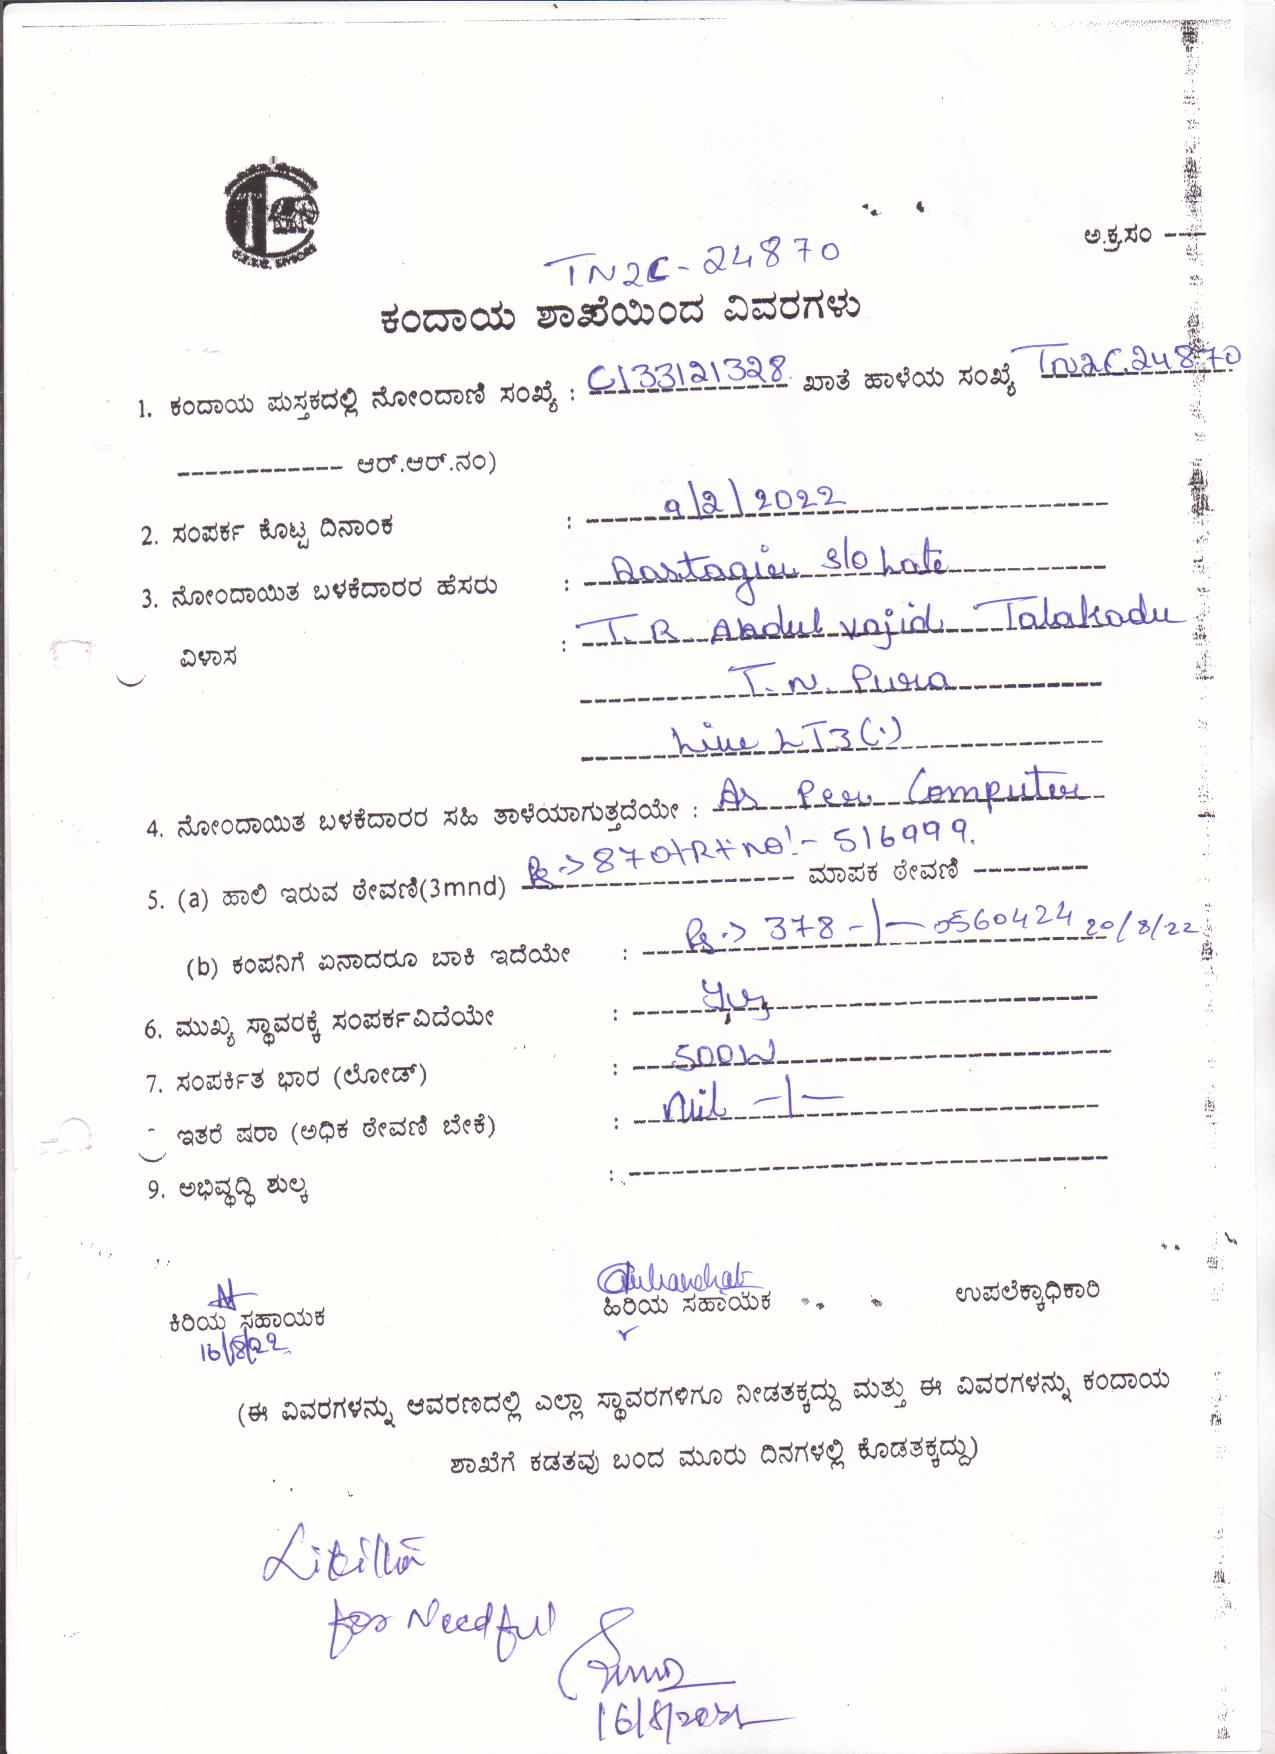 ಅ.ಕ್ರ.ಸಂ ----
TN2C-24870
ಕಂದಾಯ ಶಾಖೆಯಿಂದ ವಿವರಗಳು
1. ಕಂದಾಯ ಪುಸ್ತಕದಲ್ಲಿ ನೋಂದಾಣಿ ಸಂಖ್ಯೆ : C133121328 ಖಾತೆ ಹಾಳೆಯ ಸಂಖ್ಯೆ TN2C24870
------------ ಆರ್.ಆರ್.ನಂ)
2. ಸಂಪರ್ಕ ಕೊಟ್ಟ ದಿನಾಂಕ : 9/2/2022
3. ನೋಂದಾಯಿತ ಬಳಕೆದಾರರ ಹೆಸರು : S/O Late
ವಿಳಾಸ : T. R Abdul vajid Talakadu
T. N. Pura
Line LT3(.)
4. ನೋಂದಾಯಿತ ಬಳಕೆದಾರರ ಸಹಿ ತಾಳೆಯಾಗುತ್ತದೆಯೇ : As Per Computer
5. (a) ಹಾಲಿ ಇರುವ ಠೇವಣಿ(3mnd) Rs -> 870/-R+No:- 516999. ಮಾಪಕ ಠೇವಣಿ --------
(b) ಕಂಪನಿಗೆ ಏನಾದರೂ ಬಾಕಿ ಇದೆಯೇ : Rs -> 378 -/- 0560424 20/8/22
6. ಮುಖ್ಯ ಸ್ಥಾವರಕ್ಕೆ ಸಂಪರ್ಕವಿದೆಯೇ :
7. ಸಂಪರ್ಕಿತ ಭಾರ (ಲೋಡ್) : 500W
ಇತರೆ ಷರಾ (ಅಧಿಕ ಠೇವಣಿ ಬೇಕೆ) : Nil -/-
9. ಅಭಿವೃದ್ಧಿ ಶುಲ್ಕ :
ಕಿರಿಯ ಸಹಾಯಕ ಹಿರಿಯ ಸಹಾಯಕ ಉಪಲೆಕ್ಕಾಧಿಕಾರಿ
16/8/22
(ಈ ವಿವರಗಳನ್ನು ಆವರಣದಲ್ಲಿ ಎಲ್ಲಾ ಸ್ಥಾವರಗಳಿಗೂ ನೀಡತಕ್ಕದ್ದು ಮತ್ತು ಈ ವಿವರಗಳನ್ನು ಕಂದಾಯ
ಶಾಖೆಗೆ ಕಡತವು ಬಂದ ಮೂರು ದಿನಗಳಲ್ಲಿ ಕೊಡತಕ್ಕದ್ದು)
for Needful
16/8/2022